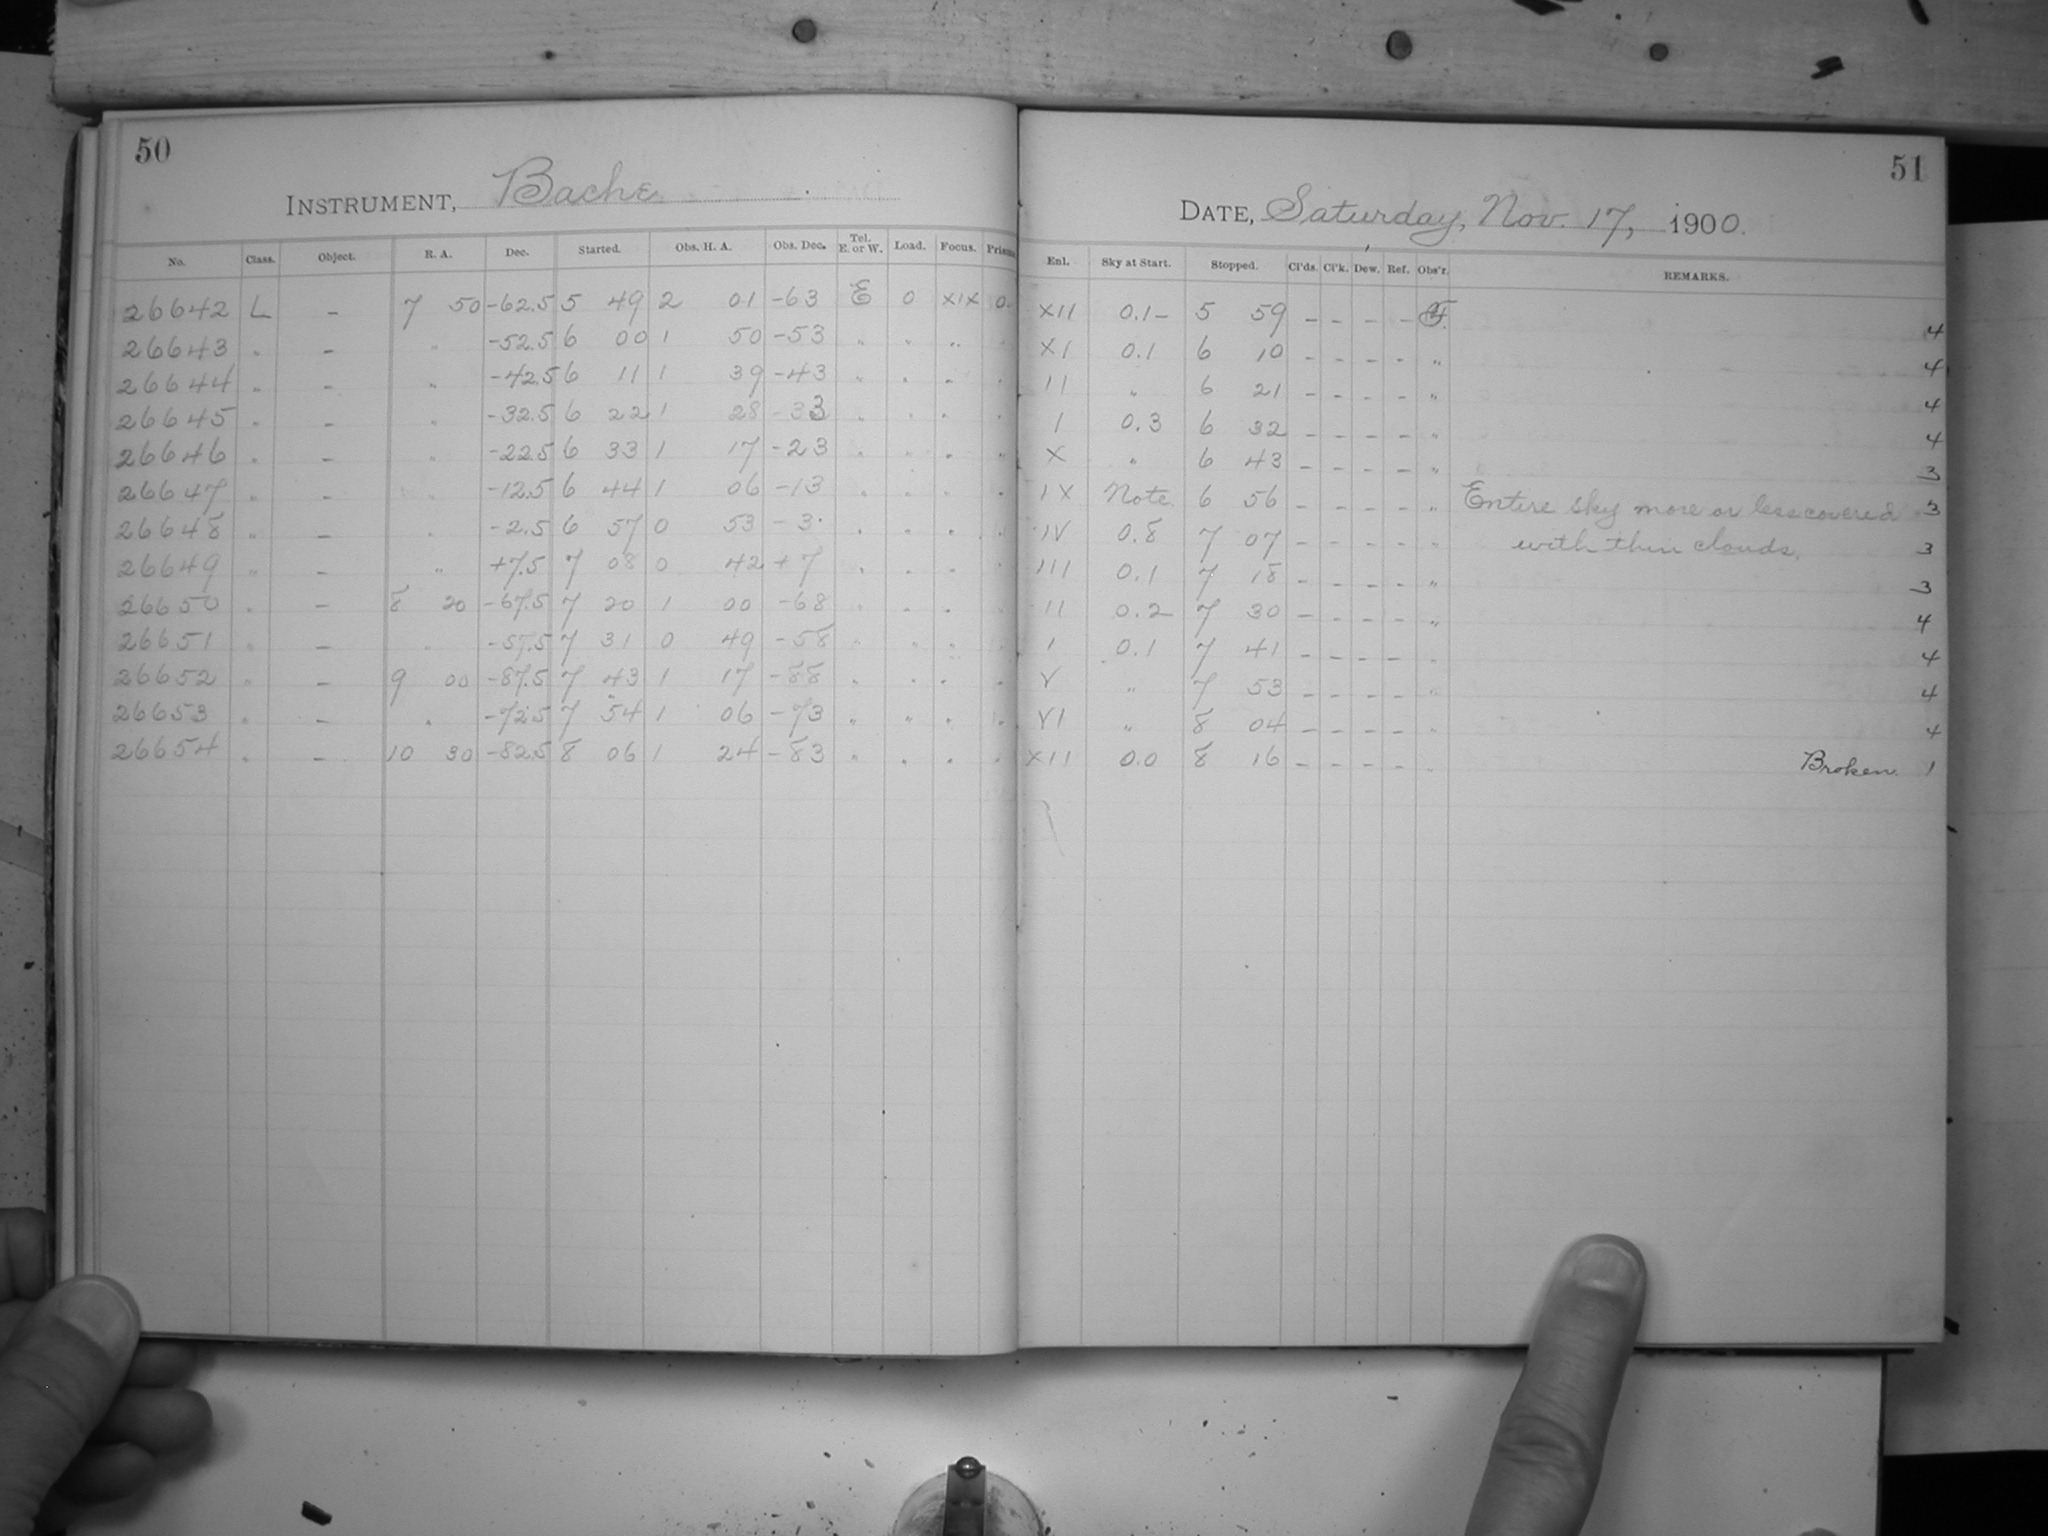 50
INSTRUMENT, Bache
No. Class. Object. R. A. Dec. Started. Obs. H. A. Obs. Dec. Tel. E. or W. Load. Focus. Prisms
26642 L – 7 50 -62.5 5 49 2 01 -63 E 0 XIX 0
26643 " – " -52.5 6 00 1 50 -53 " " " "
26644 " – " -42.5 6 11 1 39 -43 " " " "
26645 " – " -32.5 6 22 1 28 -33 " " " "
26646 " – " -22.5 6 33 1 17 -23 " " " "
26647 " – " -12.5 6 44 1 06 -13 " " " "
26648 " – " -2.5 6 57 0 53 -3 " " " "
26649 " – " +7.5 7 08 0 42 +7 " " " "
26650 " – 8 20 -67.5 7 20 1 00 -68 " " " "
26651 " – " -57.5 7 31 0 49 -58 " " " "
26652 " – 9 00 -87.5 7 43 1 17 -88 " " " "
26653 " – " -72.5 7 54 1 06 -73 " " " "
26654 " – 10 30 -82.5 8 06 1 24 -83 " " " "
51
DATE, Saturday, Nov. 17, 1900.
Enl. Sky at Start. Stopped. Cl'ds. Cl'k. Dew. Ref. Obs'r. REMARKS.
XII 0.1– 5 59 – – – – 4
XI 0.1 6 10 – – – – " 4
II " 6 21 – – – – " 4
I 0.3 6 32 – – – – " 4
X " 6 43 – – – – " 3
IX Note 6 56 – – – – " Entire sky more or less covered 3
IV 0.8 7 07 – – – – " with thin clouds. 3
III 0.1 7 18 – – – – " 3
II 0.2 7 30 – – – – " 4
I 0.1 7 41 – – – – " 4
V " 7 53 – – – – " 4
VI " 8 04 – – – – " 4
XII 0.0 8 16 – – – – " Broken. 1